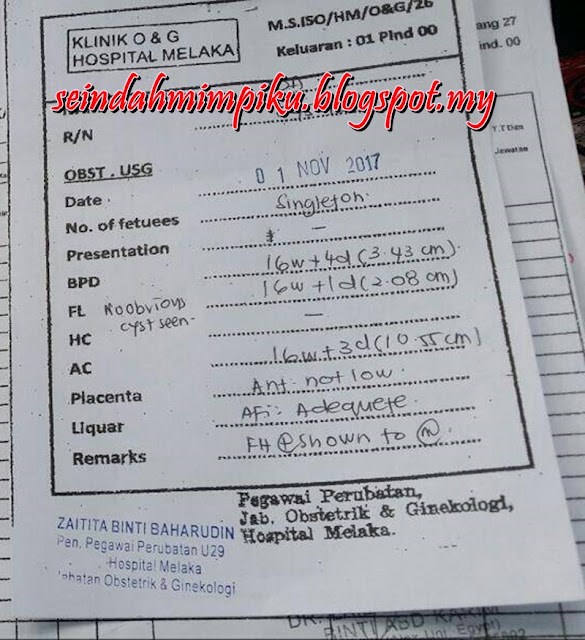 KLINIK O & G
HOSPITAL MELAKA
M.S.ISO/HM/O&G/26
Keluaran : 01 Pind 00
ang 27
ind. 00
seindahmimpiku.blogspot.my
R/N
Jawatan
OBST . USG
Date 01 NOV 2017
No. of fetuees Singleton.
Presentation –
BPD 16w+4d (3.43 cm).
FL No obvious cyst seen. 16w+1d (2.08 cm)
HC –
AC 16w+3d (10.55cm)
Placenta Ant. not low.
Liquar AFI: Adequete.
Remarks FH ⊕ shown to (m).
Pegawai Perubatan,
Jab. Obstetrik & Ginekologi,
Hospital Melaka.
ZAITITA BINTI BAHARUDIN
Pen. Pegawai Perubatan U29
Hospital Melaka
Jabatan Obstetrik & Ginekologi